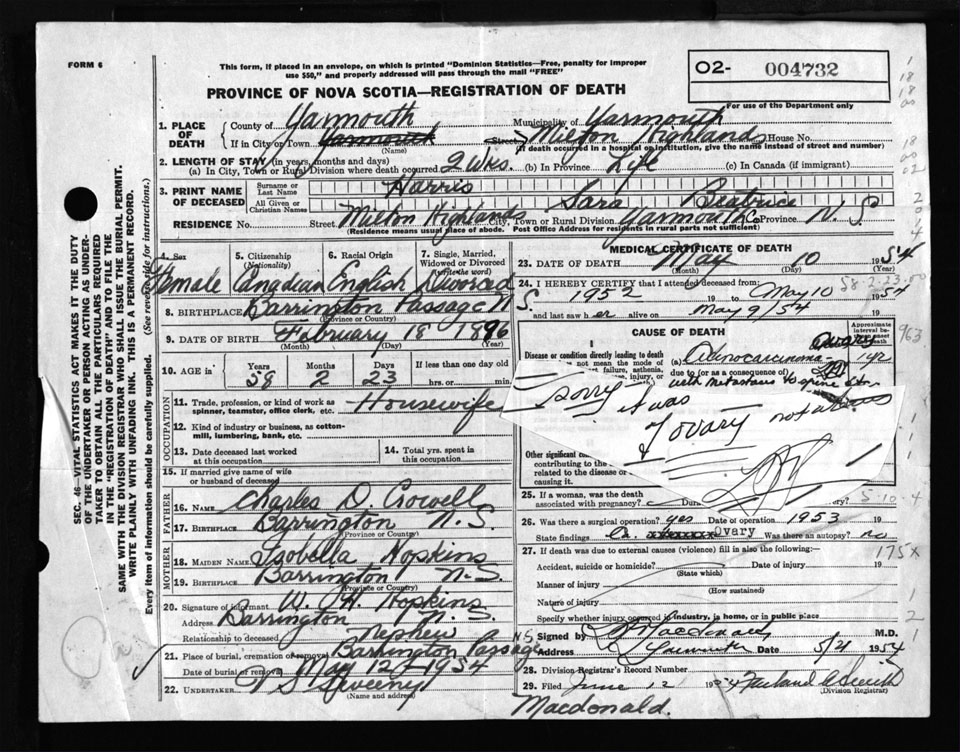 FORM 6
This form, if placed in an envelope, on which is printed "Dominion Statistics—Free, penalty for improper
use $50," and properly addressed will pass through the mail "FREE"
02- 004732
For use of the Department only
PROVINCE OF NOVA SCOTIA—REGISTRATION OF DEATH
1. PLACE OF DEATH
County of Yarmouth Municipality of Yarmouth
If in City or Town Yarmouth Street Milton Highlands House No.
(Name) (If death occurred in a hospital or institution, give the name instead of street and number)
2. LENGTH OF STAY (in years, months and days)
(a) In City, Town or Rural Division where death occurred 2 wks. (b) In Province Life (c) In Canada (if immigrant)
3. PRINT NAME OF DECEASED
Surname or Last Name Harris
All Given or Christian Names Sara Beatrice
RESIDENCE No. Street Milton Highlands City, Town or Rural Division Yarmouth Co Province N. S
(Residence means usual place of abode. Post Office Address for residents in rural parts not sufficient)
4. Sex 5. Citizenship (Nationality) 6. Racial Origin 7. Single, Married, Widowed or Divorced (write the word)
Female Canadian English Divorced
8. BIRTHPLACE Barrington Passage N S.
(Province or Country)
9. DATE OF BIRTH February 18 1896
(Month) (Day) (Year)
10. AGE in Years Months Days If less than one day old
58 2 23 hrs. or min.
OCCUPATION
11. Trade, profession or kind of work as
spinner, teamster, office clerk, etc. Housewife
12. Kind of industry or business, as cotton-
mill, lumbering, bank, etc.
13. Date deceased last worked
at this occupation
14. Total yrs. spent in
this occupation
15. If married give name of wife
or husband of deceased
FATHER
16. Name Charles D. Crowell
17. Birthplace Barrington N. S.
(Province or Country)
MOTHER
18. Maiden Name Isobella Hopkins
19. Birthplace Barrington N. S.
(Province or Country)
20. Signature of informant W. H. Hopkins
Address Barrington N. S.
Relationship to deceased Nephew
21. Place of burial, cremation or removal Barrington Passage N S
Date of burial or removal May 12 - 1954
22. UNDERTAKER Sweeny
(Name and address)
MEDICAL CERTIFICATE OF DEATH
23. DATE OF DEATH May 10 1954
(Month) (Day) (Year)
24. I HEREBY CERTIFY that I attended deceased from:
1952 19 to May 10 1954
and last saw her alive on May 9/54 19
58-2-23-50
CAUSE OF DEATH
Approximate interval be-
963
Disease or condition directly leading to death
(a) Adinocarcinoma ovary 1 yr
not mean the mode of
failure, asthenia,
injury, or
due to (or as a consequence of)
with metastasis to spine
sorry it was
ovary not
Other significant
contributing to the
related to the disease
causing it
25. If a woman, was the death
associated with pregnancy?
5-10-4
26. Was there a surgical operation? yes Date of operation 1953 19
State findings Ca. Ovary Was there an autopsy? no
27. If death was due to external causes (violence) fill in also the following:-
175x
Accident, suicide or homicide? Date of injury 19
(State which)
Manner of injury
(How sustained)
Nature of injury
Specify whether injury occurred in industry, in home, or in public place
Signed by Macdonald M.D.
Date 5/21 1954
28. Division Registrar's Record Number
29. Filed June 12 1954 Farland A Smith
(Division Registrar)
Macdonald.
SEC. 46—VITAL STATISTICS ACT MAKES IT THE DUTY
OF THE UNDERTAKER OR PERSON ACTING AS UNDER-
TAKER TO OBTAIN ALL THE PARTICULARS REQUIRED
IN THE "REGISTRATION OF DEATH" AND TO FILE THE
SAME WITH THE DIVISION REGISTRAR WHO SHALL ISSUE THE BURIAL PERMIT.
WRITE PLAINLY WITH UNFADING INK. THIS IS A PERMANENT RECORD.
Every item of information should be carefully supplied. (See reverse side for instructions.)